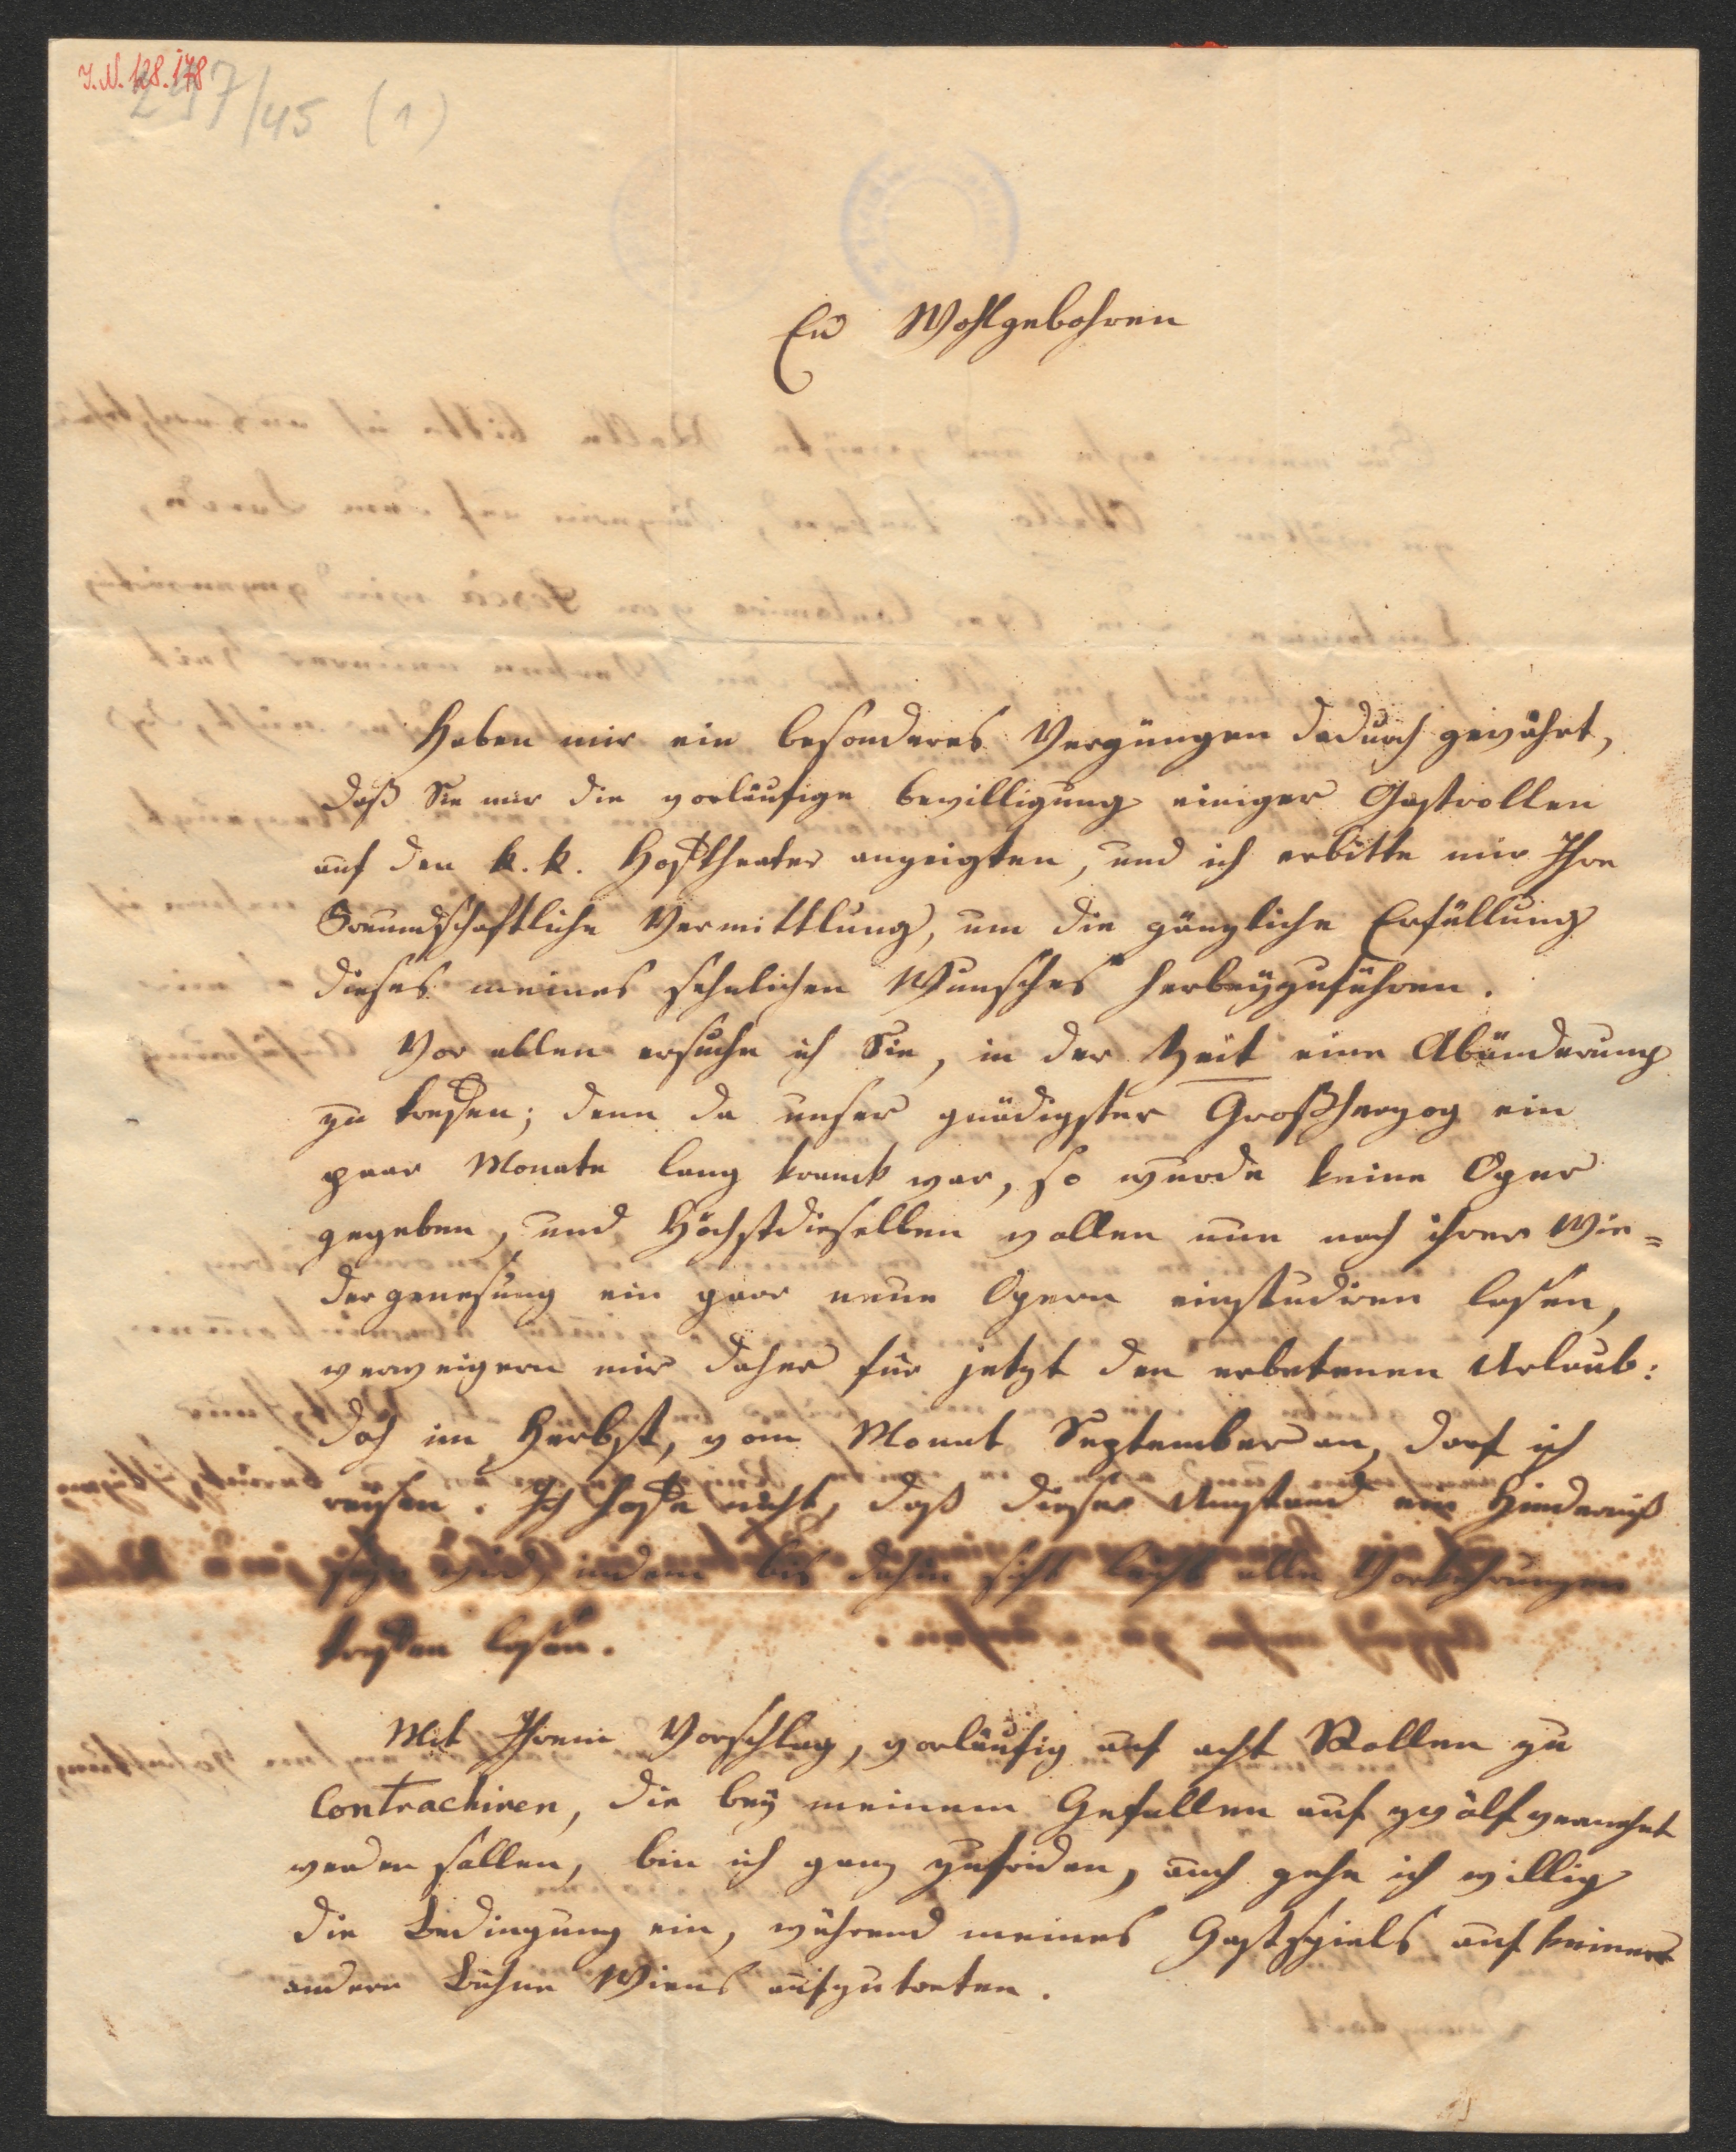 I.N. 128.178
297/45 (1)
Eu Wohlgebohren
Haben mir ein besonderes Vergnügen dadurch gewährt,
daß Sie mir die vorläufige bewilligung einiger Gastrollen
auf den k. k. Hoftheater anzeigten, und ich erbitte mir Ihre
Freundschaftliche Vermittlung, um die gänzliche Erfüllung
dieses meines sehnlichen Wunsches herbeyzuführen.
Vor allen ersuche ich Sie, in der Zeit eine Abänderung
zu treffen; denn da unser gnädigster Großherzog ein
paar Monate lang kranck war, so wurde keine Oper
gegeben, und Höchstdieselben wollen nun nach ihrer Wie=
dergenesung ein paar neue Opern einstudiren lassen,
verweigern mir daher für jetzt den erbetenen Urlaub:
doch im Herbst, vom Monat September an, darf ich
reisen. Ich hoffe nicht, daß dieser Umstand ein Hinderniß
seyn wird, indem bis dahin sich leicht alle Vorkehrungen
treffen lassen.
Mit Ihrem Vorschlag, vorläufig auf acht Rollen zu
Contrachiren, die bey meinem Gefallen auf zwölf vermehrt
werden sollen, bin ich ganz zufriden, auch gehe ich willig
die Bedingung ein, während meines Gastspiels auf keiner
andern Bühne Wiens aufzutreten.